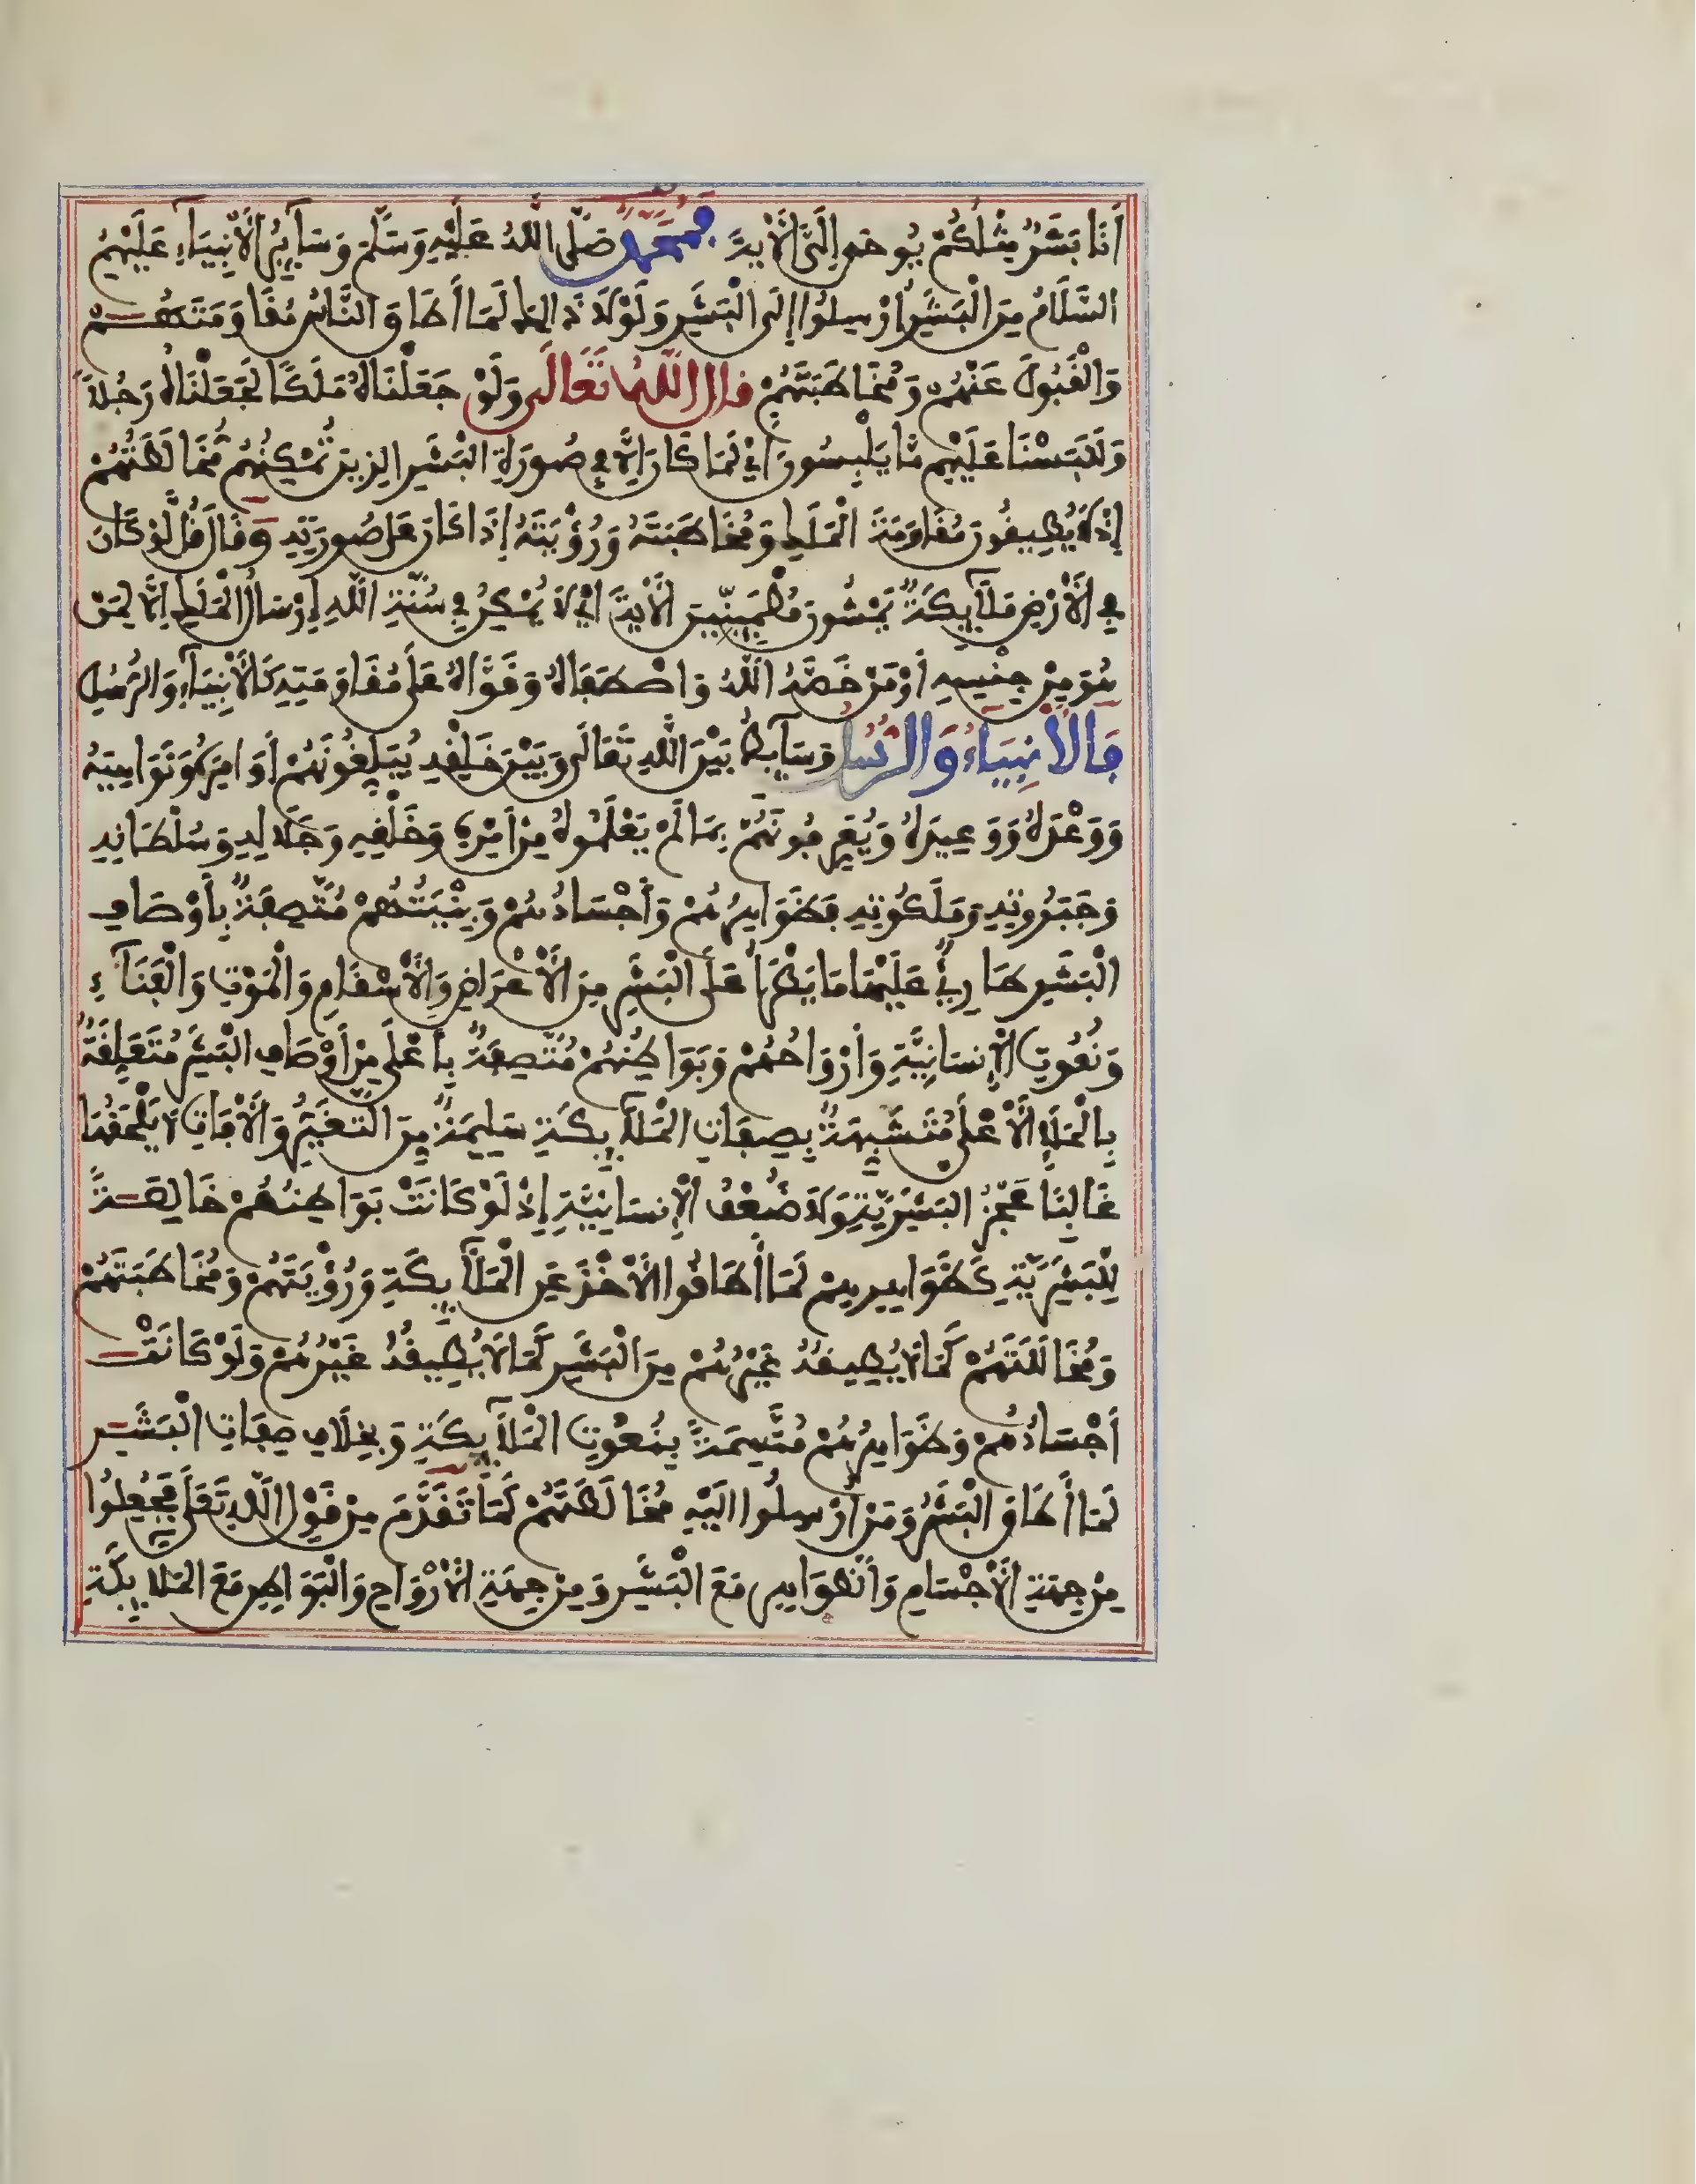 أَنَا بَشَرٌ مِثْلُكُمْ يُوحَى إِلَيَّ الْأَيَةَ فمحمد صَلَّى اللَّهُ عَلَيْهِ وَسَلَّمَ وَسَآيِرُ الْأَنْبِيَآءِ عَلَيْهِمُ
السَّلَامُ مِنَ الْبَشَرِ أُرْسِلُوا إِلَى الْبَشَرِ وَلَوْلَا ذَالِكَ لَمَا أَطَاقَ النَّاسُ مُقَاوَمَتَهُمْ
وَالْقَبُولَ عَنْهُمْ وَمُخَاطَبَتَهُمْ قال اللَّهُ تَعَالَى وَلَوْ جَعَلْنَاهُ مَلَكًا لَجَعَلْنَاهُ رَجُلًا
وَلَلَبَسْنَا عَلَيْهِم مَّا يَلْبِسُونَ أَيْ لَمَا كَانَ إِلَّا فِي صُورَةِ الْبَشَرِ الذِينَ تُمْكِنُهُمْ مُخَالَطَتُهُمْ
إِذْ لَا يُطِيقُونَ مُقَاوَمَةَ الْمَلَكِ وَمُخَاطَبَتَهُ وَرُؤْيَتَهُ إِذَا كَانَ عَلَى صُورَتِهِ وَقَالَ قُل لَّوْ كَانَ
فِي الْأَرْضِ مَلَآيِكَةٌ يَمْشُونَ مُطْمَيِنِّينَ الْأَيَةَ أَيْ لَا يُمْكِنُ فِي سُنَّةِ اللَّهِ إِرْسَالُ الْمَلَكِ إِلَّا لِمَنْ
هُوَ مِنْ جِنْسِهِ أَوْ مَنْ خَصَّهُ اللَّهُ وَاصْطَفَاهُ وَقَوَّاهُ عَلَى مُقَاوَمَتِهِ كَالْأَنْبِيَآءِ وَالرُّسُلِ
فَالْأَنْبِيَآءُ وَالرُّسُلُ وَسَآيِطُ بَيْنَ اللَّهِ تَعَالَى وَبَيْنَ خَلْقِهِ يُبَلِّغُونَهُمْ أَوَامِرَهُ وَنَوَاهِيَهُ
وَوَعْدَهُ وَوَعِيدَهُ وَيُعَرِّفُونَهُمْ بِمَا لَمْ يَعْلَمُوهُ مِنْ أَمْرِهِ وَخَلْقِهِ وَجَلَالِهِ وَسُلْطَانِهِ
وَجَبَرُوتِهِ وَمَلَكُوتِهِ فَظَوَاهِرُهُمْ وَأَجْسَادُهُمْ وَبِنْيَتُهُمْ مُتَّصِفَةٌ بِأَوْصَافِ
الْبَشَرِ طَارِئٌ عَلَيْهَا مَا يَطْرَأُ عَلَى الْبَشَرِ مِنَ الْأَعْرَاضِ وَالْأَسْقَامِ وَالْمَوْتِ وَالْفَنَآءِ
وَنُعُوتِ الْإِنسَانِيَّةِ وَأَرْوَاحُهُمْ وَبَوَاطِنُهُمْ مُتَّصِفَةٌ بِأَعْلَى مِنْ أَوْصَافِ الْبَشَرِ مُتَعَلِّقَةٌ
بِالْمَلَإِ الْأَعْلَى مُتَشَبِّهَةٌ بِصِفَاتِ الْمَلَآيِكَةِ سَلِيمَةٌ مِنَ التَّغَيُّرِ وَالْأَفَاتِ لَا يَلْحَقُهَا
غَالِبًا عَجْزُ الْبَشَرِيَّةِ وَلَا ضُعْفُ الْإِنسَانِيَّةِ إِذْ لَوْ كَانَتْ بَوَاطِنُهُمْ خَالِصَةً
لِلْبَشَرِيَّةِ كَظَوَاهِرِهِمْ لَمَا أَطَاقُوا الْأَخْذَ عَنِ الْمَلَآيِكَةِ وَرُؤْيَتَهُمْ وَمُخَاطَبَتَهُمْ
وَمُخَالَلَتَهُمْ كَمَا لَا يُطِيقُهُ غَيْرُهُمْ مِنَ الْبَشَرِ كَمَا لَا يُطِيقُهُ غَيْرُهُمْ وَلَوْ كَانَتْ
أَجْسَادُهُمْ وَظَوَاهِرُهُمْ مُتَّسِمَةً بِنُعُوتِ الْمَلَآيِكَةِ وَبِخِلَافِ صِفَاتِ الْبَشَرِ
لَمَا أَطَاقَ الْبَشَرُ وَمَنْ أُرْسِلُوا إِلَيْهِ مُخَالَطَتَهُمْ كَمَا تَقَدَّمَ مِنْ قَوْلِ اللَّهِ تَعَلَى فَجُعِلُوا
مِنْ جِهَةِ الْأَجْسَامِ وَالظَّوَاهِرِ مَعَ الْبَشَرِ وَمِنْ جِهَةِ الْأَرْوَاحِ وَالْبَوَاطِنِ مَعَ الْمَلَايِكَةِ